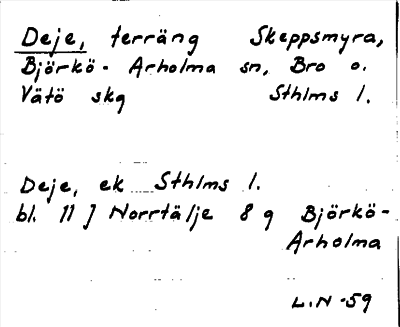 Deje, terräng Skeppsmyra,
Björkö- Arholma sn, Bro o.
Vätö skg Sthlms l.
Deje, ek Sthlms l.
bl. 11 J Norrtälje 8 g Björkö-
Arholma
L.N -59